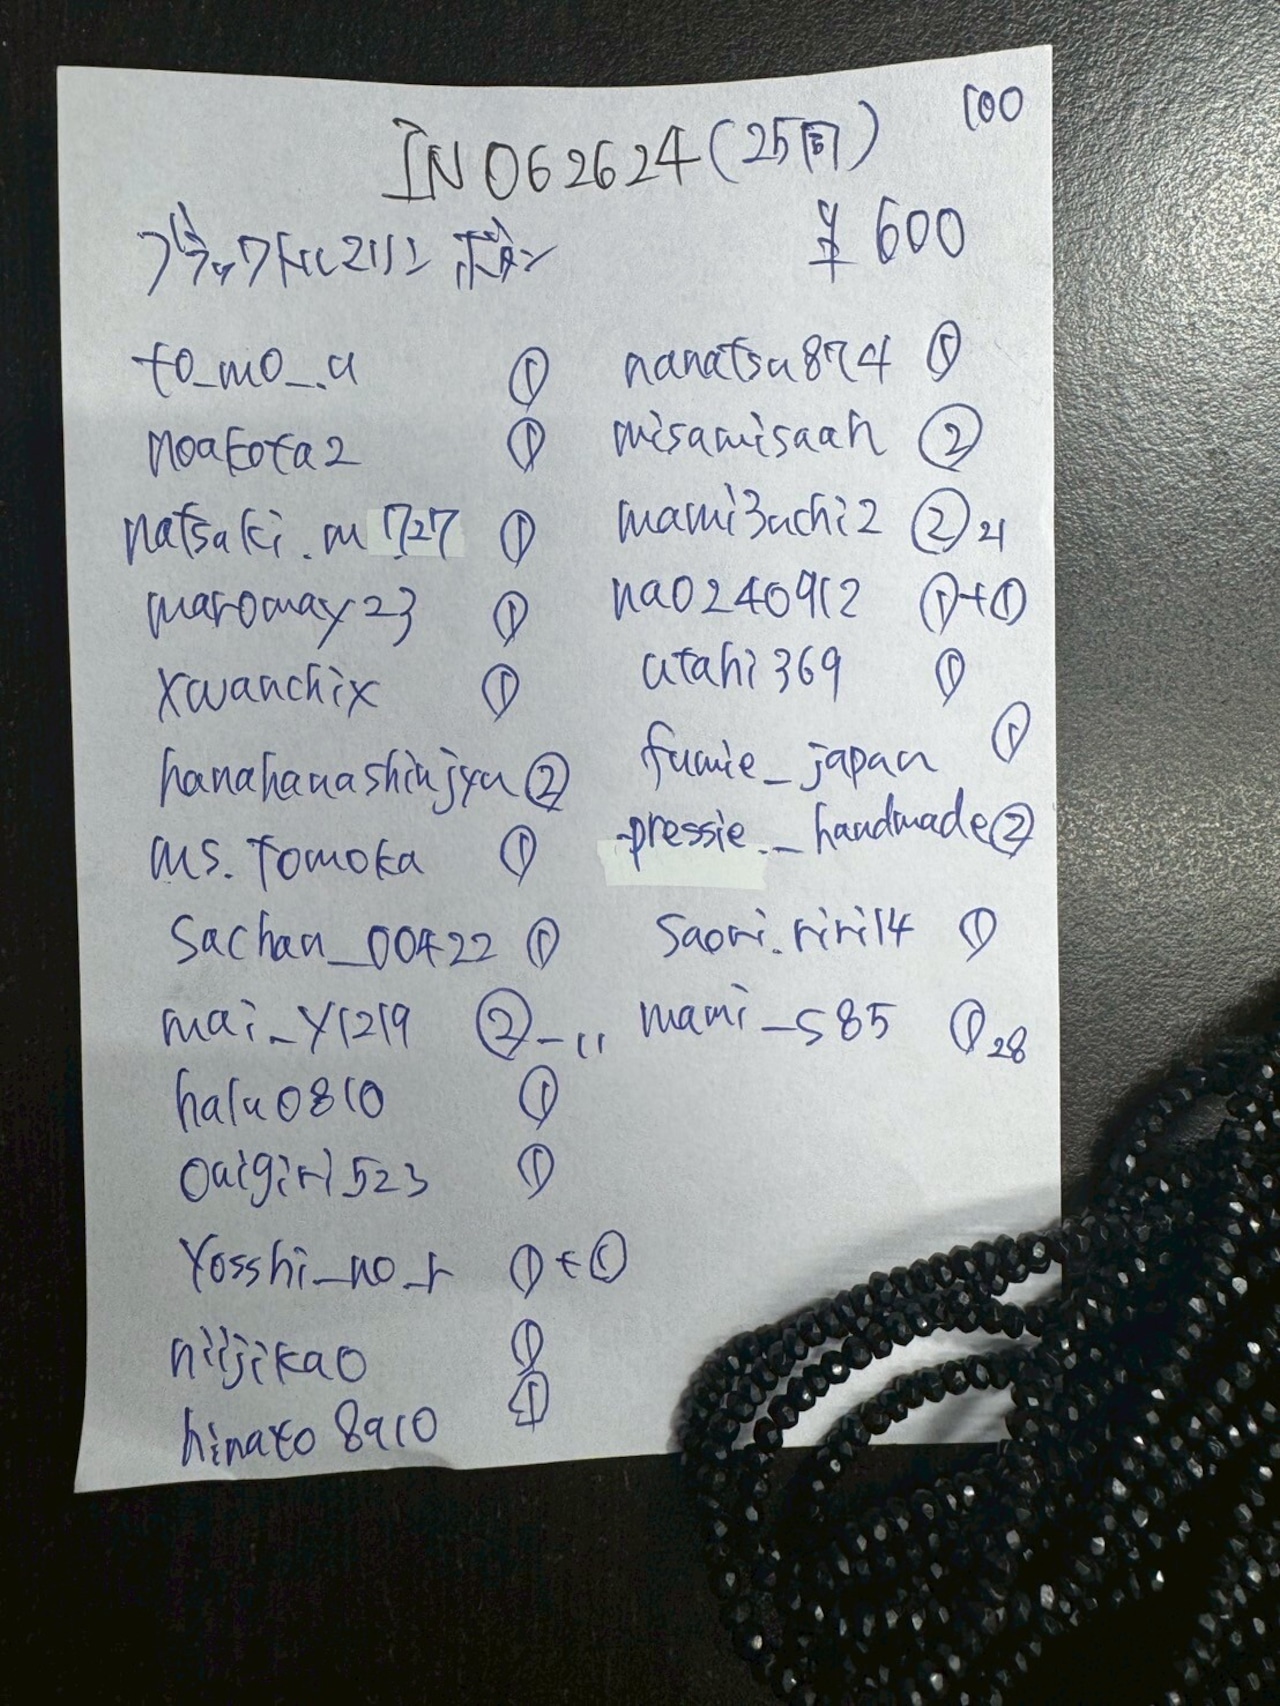 100
IN062624(25同)
¥600
to_mo_.u ①
noakota2 ①
natsuki.m727 ①
maromay23 ①
xwanchix ①
hanahanashinjyu ②
ms.tomoka ①
Sachan_00422 ①
mai_y1219 ②-11
halu0810 ①
onigiri523 ①
Yosshi_no_r ①+①
niijikao ①
hinato8910 ①
nanatsu874 ①
misamisaah ②
mami3uchi2 ②21
nao240912 ①+①
utahi369 ①
fumie_japan ①
pressie._handmade②
Saori.riri14 ①
mami_s85 ①28